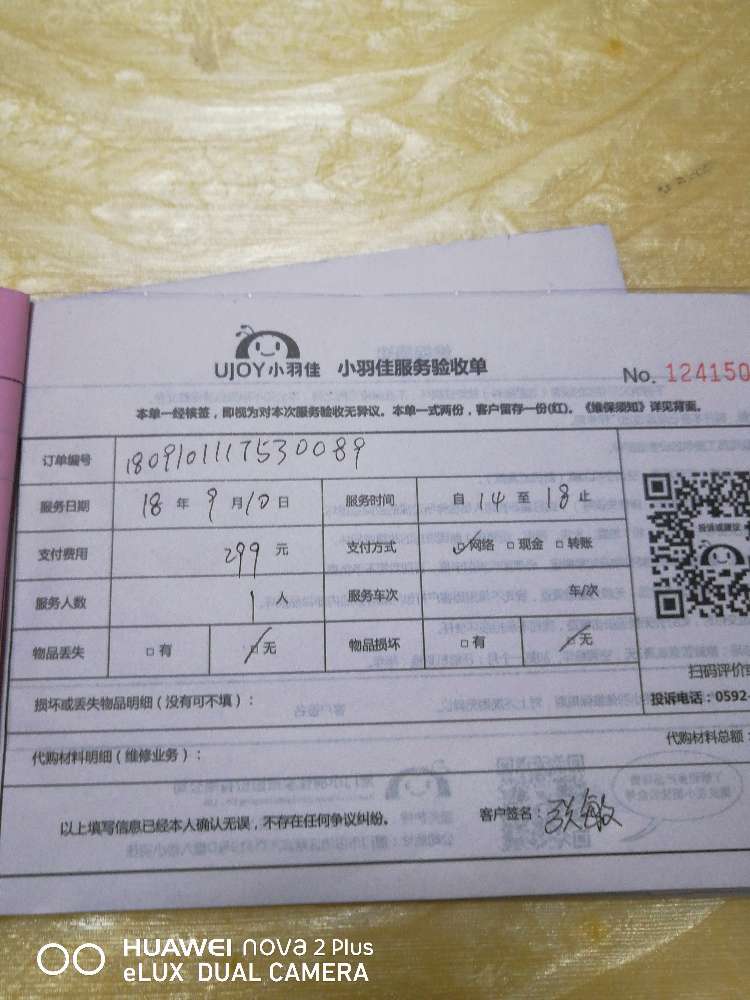 UJOY小羽佳 小羽佳服务验收单
No. 124150
本单一经核签，即视为对本次服务验收无异议。本单一式两份，客户留存一份(红)。《维保须知》详见背面。
订单编号 1809101117530089
服务日期 18 年 9 月 10 日 服务时间 自 14 至 18 止
投诉或建议
支付费用 299 元 支付方式 ☑网络 □现金 □转账
服务人数 1 人 服务车次 车/次
物品丢失 □有 ☑无 物品损坏 □有 ☑无
扫码评价
损坏或丢失物品明细（没有可不填）：
投诉电话：0592-
代购材料明细（维修业务）：
代购材料总额：
以上填写信息已经本人确认无误，不存在任何争议纠纷。 客户签名：张敏
HUAWEI nova 2 Plus
eLUX DUAL CAMERA